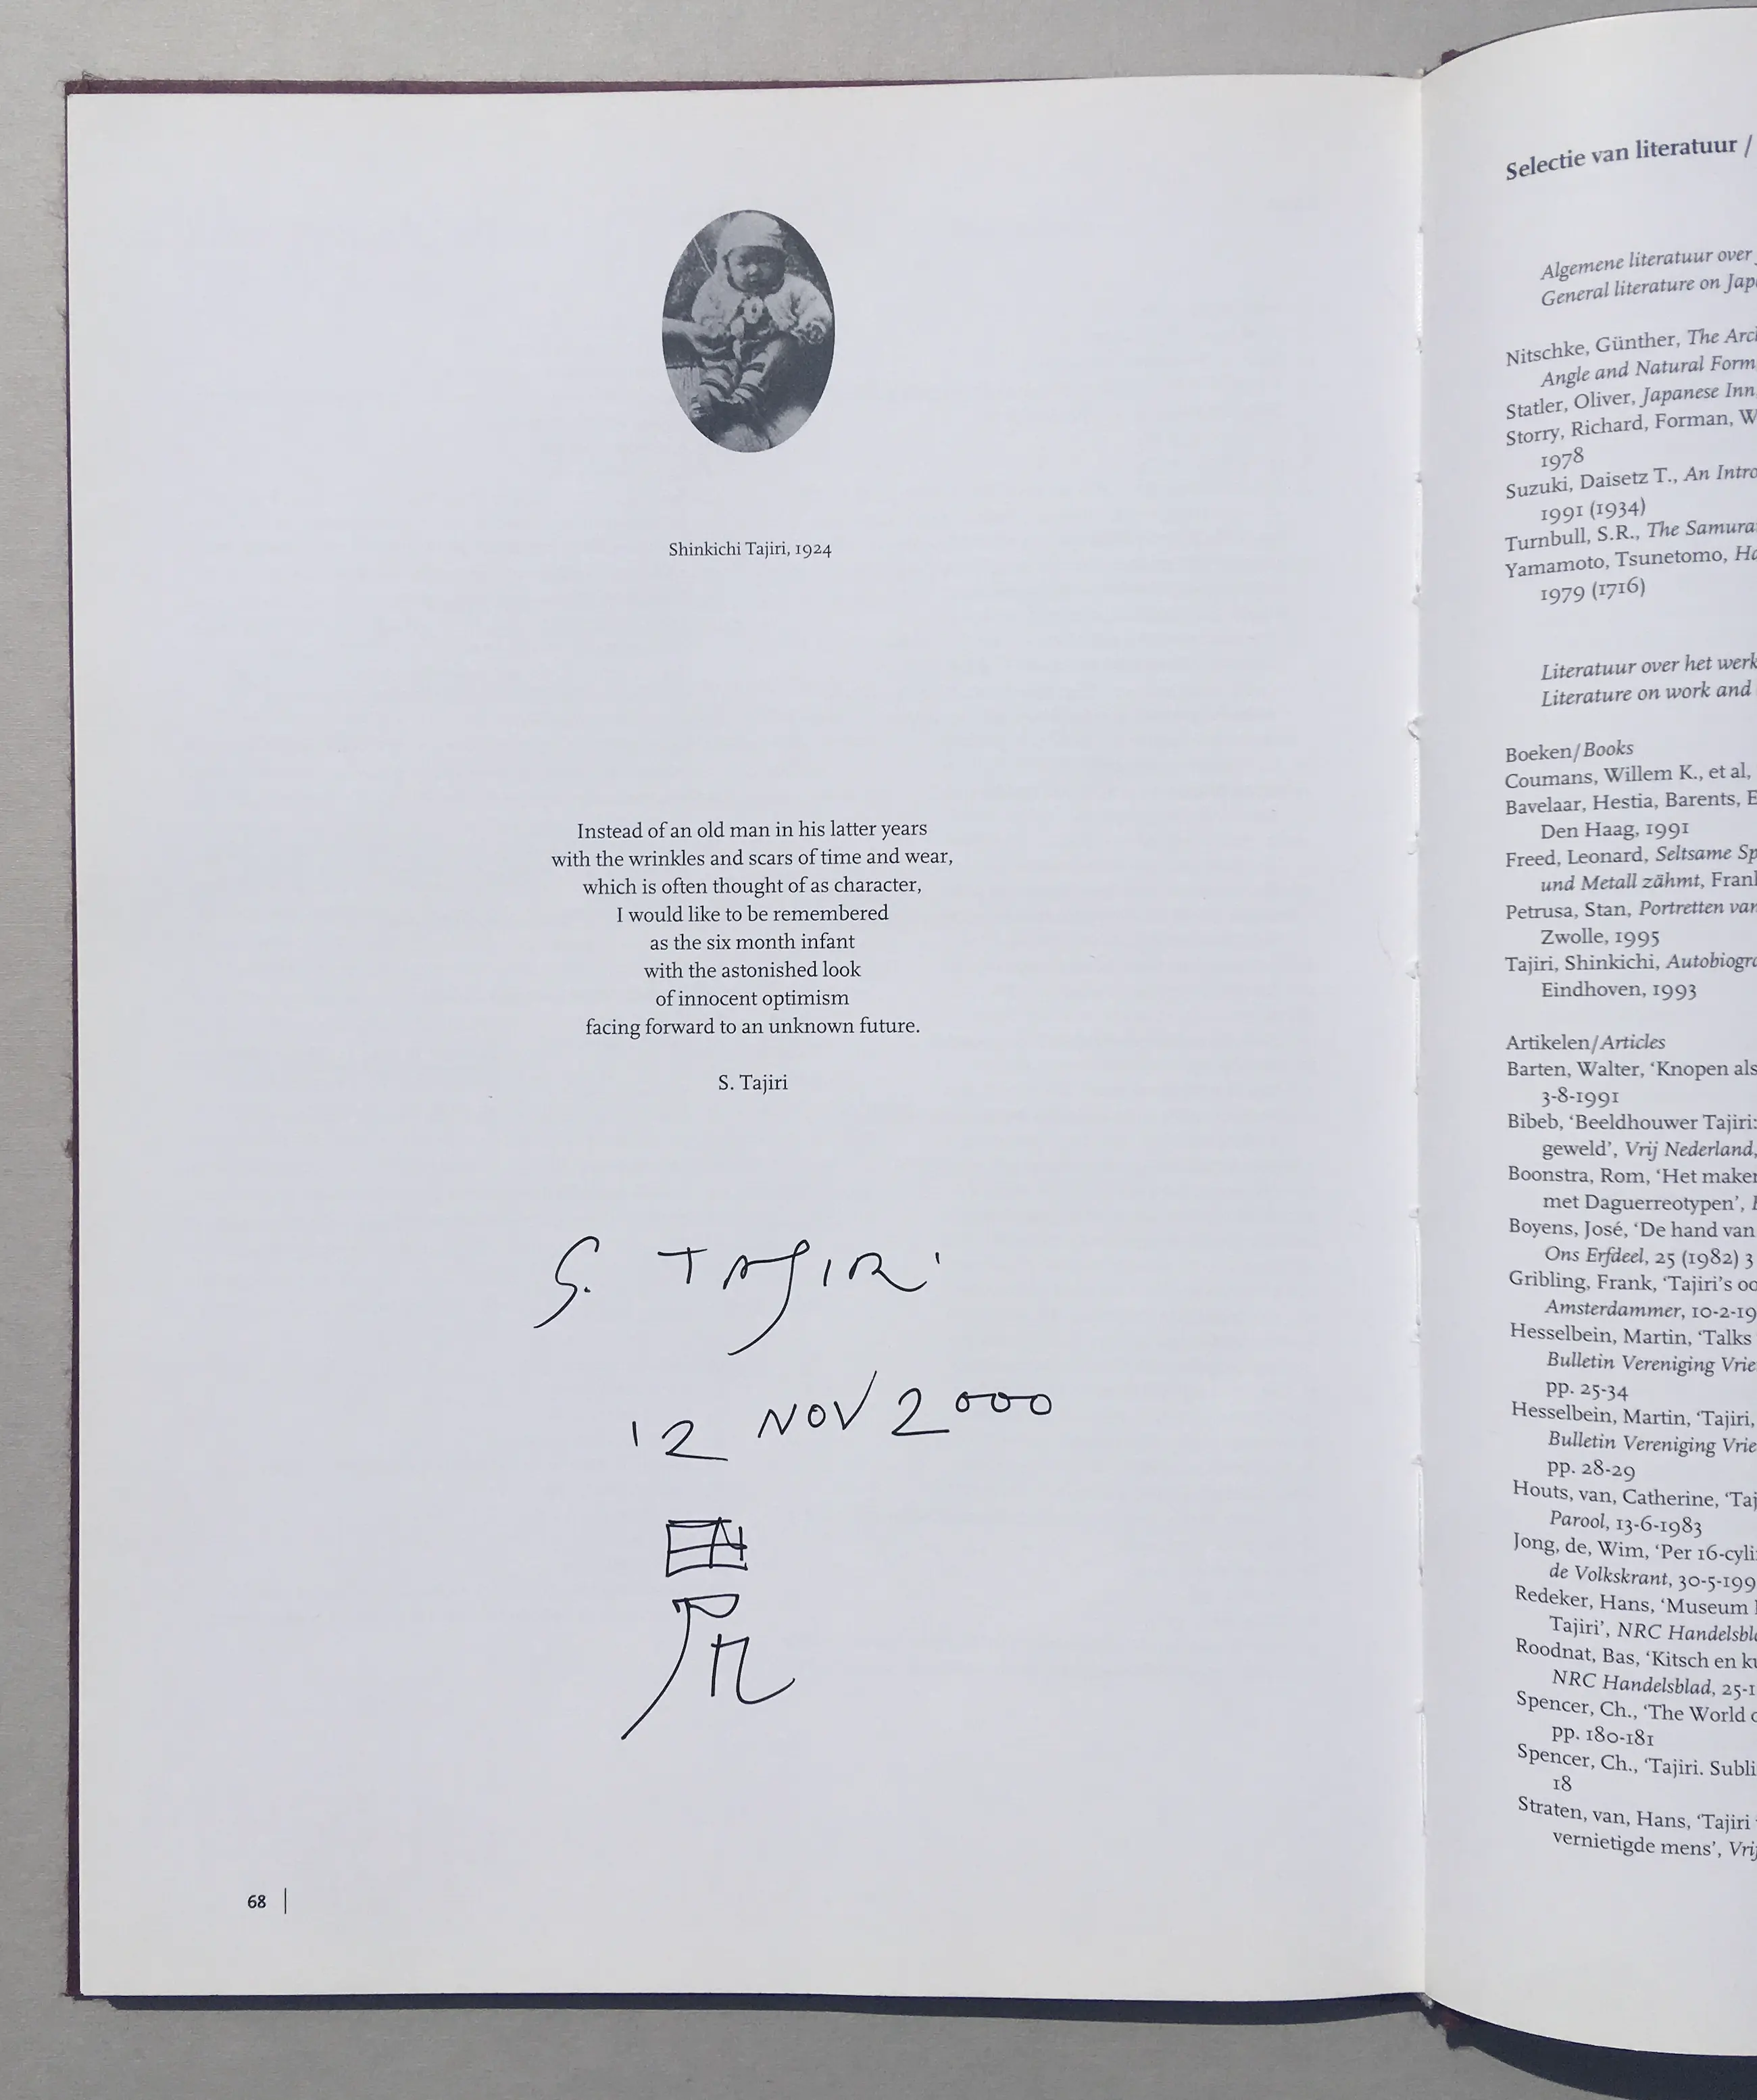 Shinkichi Tajiri, 1924
Instead of an old man in his latter years
with the wrinkles and scars of time and wear,
which is often thought of as character,
I would like to be remembered
as the six month infant
with the astonished look
of innocent optimism
facing forward to an unknown future.
S. Tajiri
S. TAJIRI
12 NOV 2000
68
Selectie van literatuur /
Algemene literatuur over
General literature on
Nitschke, Günther, The
Angle and Natural Form
Statler, Oliver, Japanese Inn
Storry, Richard, Forman, W
1978
Suzuki, Daisetz T., An
1991 (1934)
Turnbull, S.R., The
Yamamoto, Tsunetomo,
1979 (1716)
Literatuur over het werk
Literature on work and
Boeken/Books
Coumans, Willem K., et al,
Bavelaar, Hestia, Barents, E
Den Haag, 1991
Freed, Leonard, Seltsame Sp
und Metall zähmt, Frank
Petrusa, Stan, Portretten van
Zwolle, 1995
Tajiri, Shinkichi, Autobiogra
Eindhoven, 1993
Artikelen/Articles
Barten, Walter, ‘Knopen als
3-8-1991
Bibeb, ‘Beeldhouwer Tajiri:
geweld’, Vrij Nederland,
Boonstra, Rom, ‘Het maken
met Daguerreotypen’,
Boyens, José, ‘De hand van
Ons Erfdeel, 25 (1982) 3
Gribling, Frank, ‘Tajiri’s
Amsterdammer, 10-2-19
Hesselbein, Martin, ‘Talks
Bulletin Vereniging Vrie
pp. 25-34
Hesselbein, Martin, ‘Tajiri,
Bulletin Vereniging Vrie
pp. 28-29
Houts, van, Catherine, ‘Taj
Parool, 13-6-1983
Jong, de, Wim, ‘Per 16-cyli
de Volkskrant, 30-5-199
Redeker, Hans, ‘Museum
Tajiri’, NRC Handelsbla
Roodnat, Bas, ‘Kitsch en ku
NRC Handelsblad, 25-1
Spencer, Ch., ‘The World
pp. 180-181
Spencer, Ch., ‘Tajiri. Subli
18
Straten, van, Hans, ‘Tajiri
vernietigde mens’, Vrij